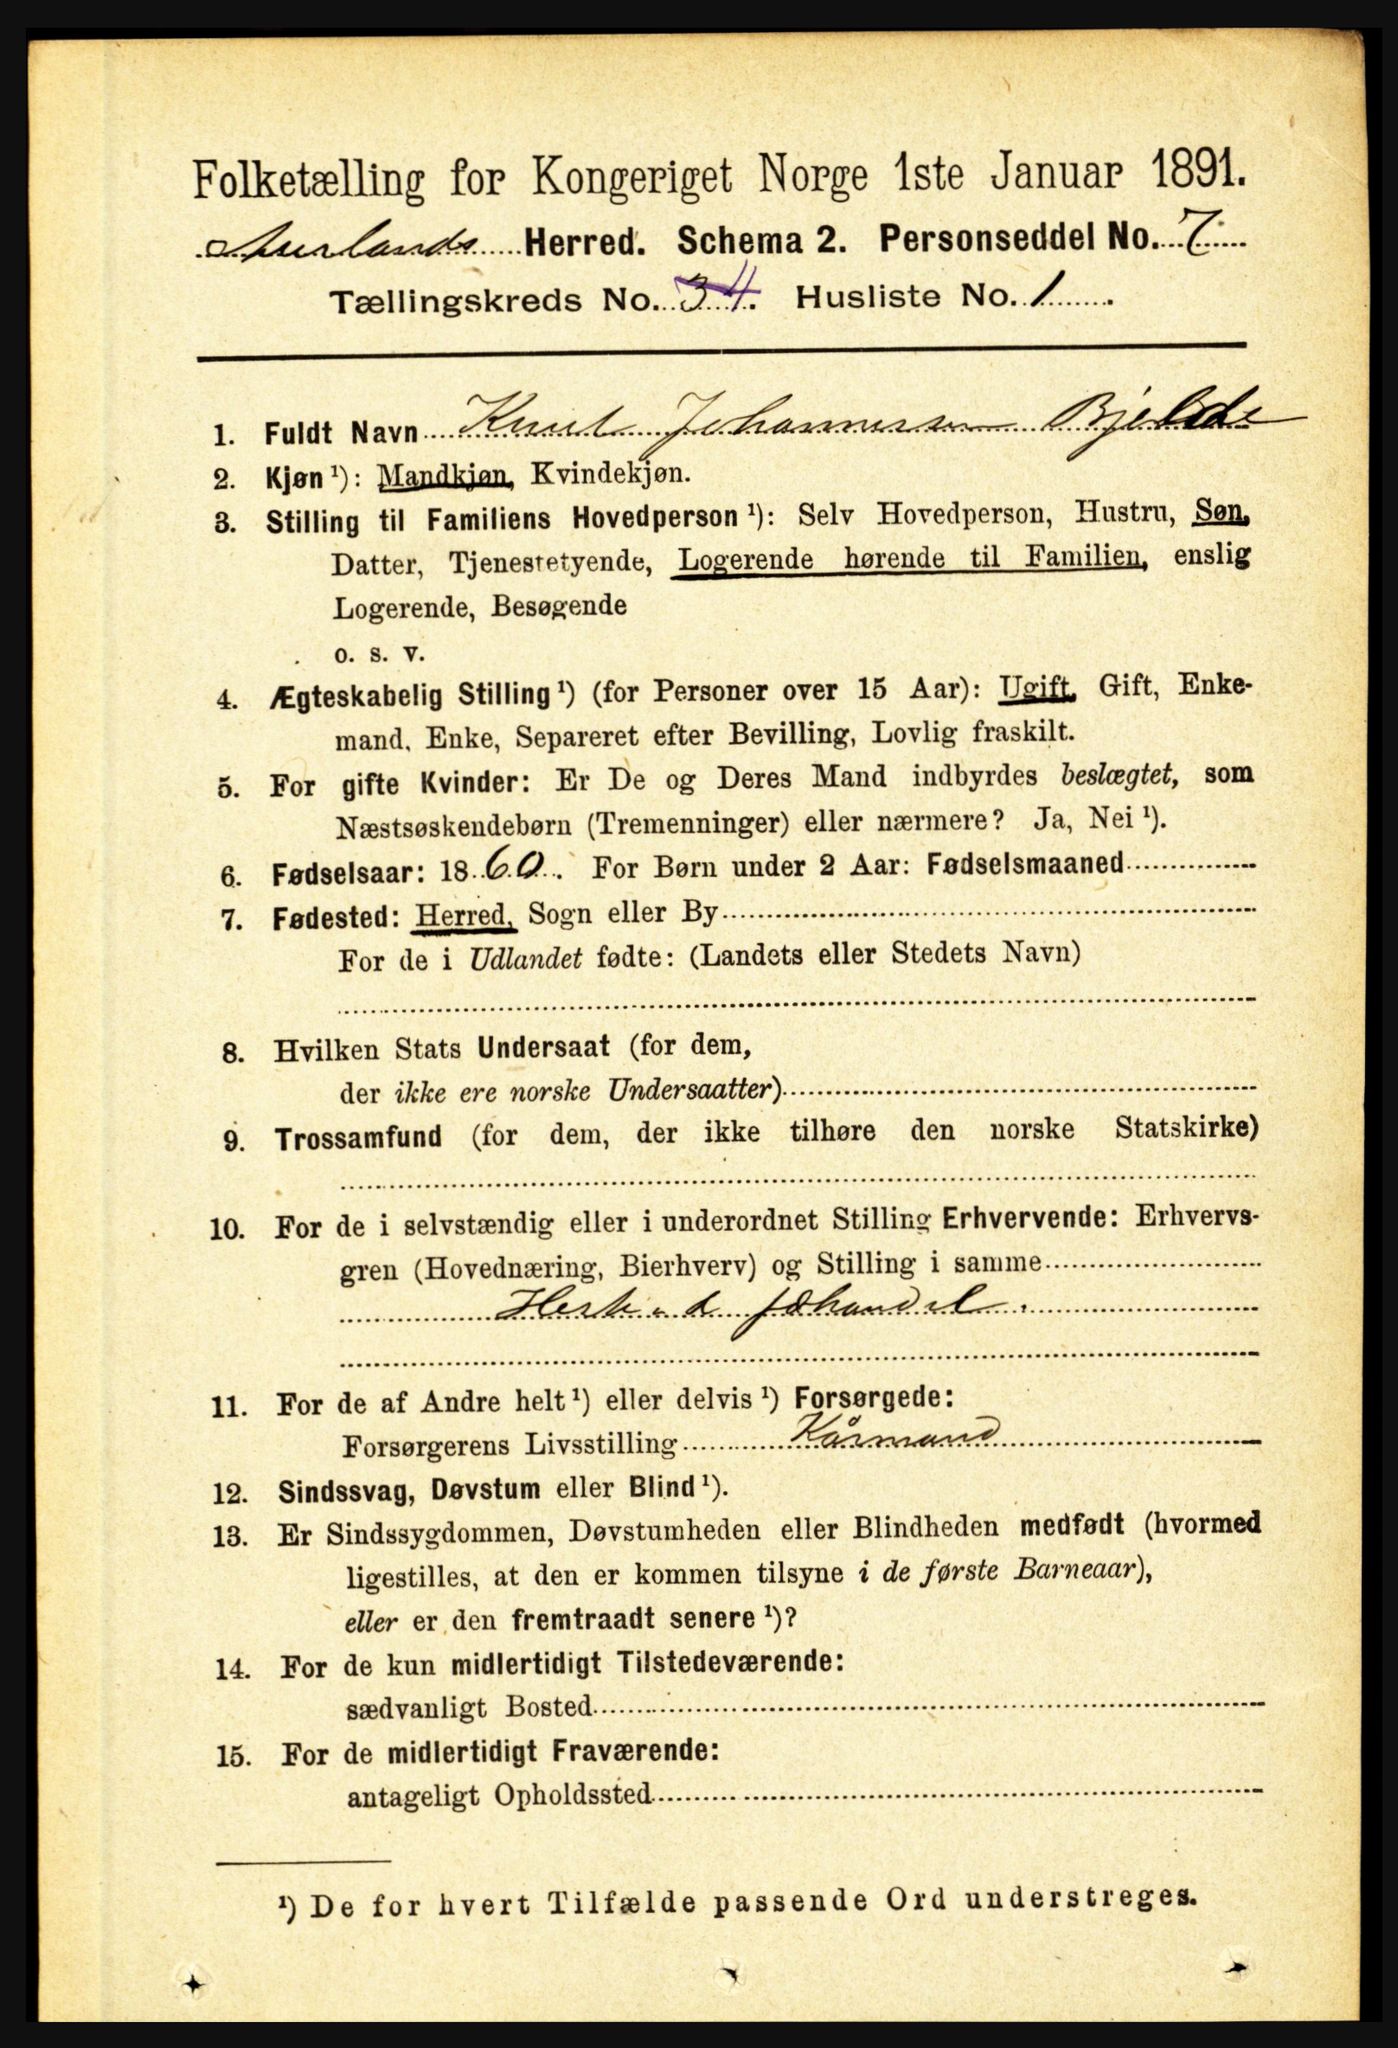 Folketælling for Kongeriget Norge 1ste Januar 1891.
Aurlands Herred. Schema 2. Personseddel No. 7
Tællingskreds No. 3 4. Husliste No. 1.
1. Fuldt Navn Knut Johannessen Bjelde
2. Kjøn ¹): Mandkjøn, Kvindekjøn.
3. Stilling til Familiens Hovedperson ¹): Selv Hovedperson, Hustru, Søn,
Datter, Tjenestetyende, Logerende hørende til Familien, enslig
Logerende, Besøgende
o. s. v.
4. Ægteskabelig Stilling ¹) (for Personer over 15 Aar): Ugift, Gift, Enke-
mand, Enke, Separeret efter Bevilling, Lovlig fraskilt.
5. For gifte Kvinder: Er De og Deres Mand indbyrdes beslægtet, som
Næstsøskendebørn (Tremenninger) eller nærmere? Ja, Nei ¹).
6. Fødselsaar: 1860. For Børn under 2 Aar: Fødselsmaaned
7. Fødested: Herred, Sogn eller By
For de i Udlandet fødte: (Landets eller Stedets Navn)
8. Hvilken Stats Undersaat (for dem,
der ikke ere norske Undersaatter)
9. Trossamfund (for dem, der ikke tilhøre den norske Statskirke)
10. For de i selvstændig eller i underordnet Stilling Erhvervende: Erhvervs-
gren (Hovednæring, Bierhverv) og Stilling i samme
Fæhandel.
11. For de af Andre helt ¹) eller delvis ¹) Forsørgede:
Forsørgerens Livsstilling Kårmand
12. Sindssvag, Døvstum eller Blind ¹).
13. Er Sindssygdommen, Døvstumheden eller Blindheden medfødt (hvormed
ligestilles, at den er kommen tilsyne i de første Barneaar),
eller er den fremtraadt senere ¹)?
14. For de kun midlertidigt Tilstedeværende:
sædvanligt Bosted
15. For de midlertidigt Fraværende:
antageligt Opholdssted
¹) De for hvert Tilfælde passende Ord understreges.